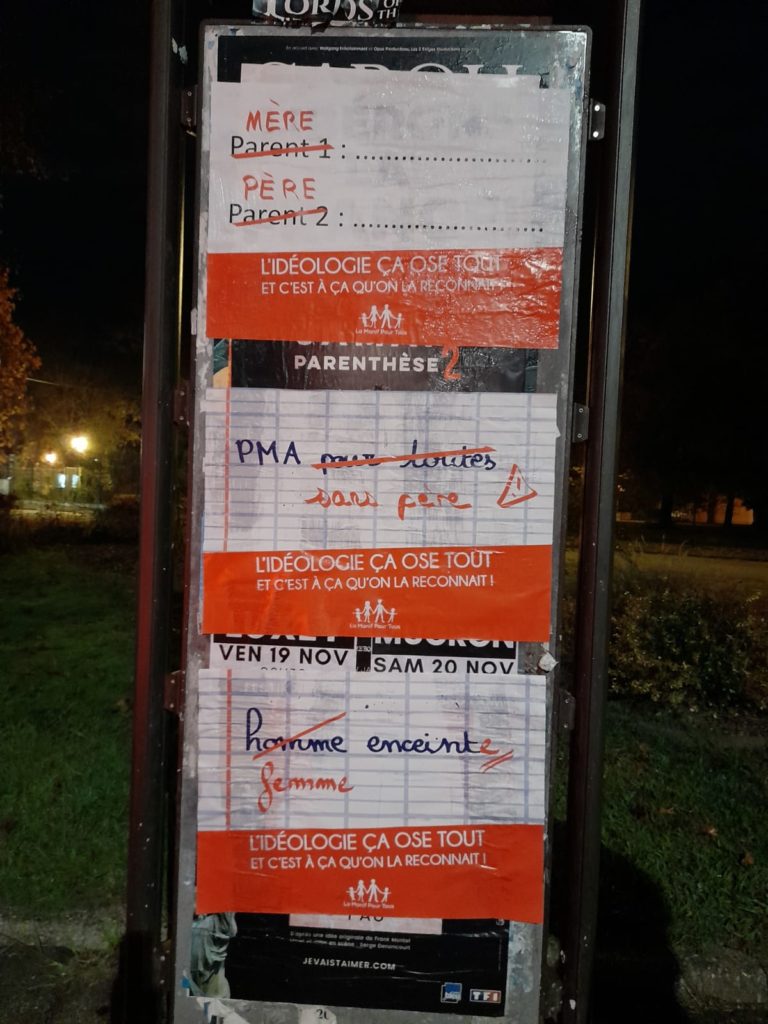 LORDS OF
TH
MÈRE
Parent 1 : ................................
PÈRE
Parent 2 : ................................
L'IDÉOLOGIE ÇA OSE TOUT
ET C'EST À ÇA QU'ON LA RECONNAIT !
La Manif Pour Tous
PARENTHÈSE 2
PMA pour toutes
sans père
L'IDÉOLOGIE ÇA OSE TOUT
ET C'EST À ÇA QU'ON LA RECONNAIT !
La Manif Pour Tous
VEN 19 NOV
SAM 20 NOV
homme enceinte
femme
L'IDÉOLOGIE ÇA OSE TOUT
ET C'EST À ÇA QU'ON LA RECONNAIT !
La Manif Pour Tous
PAU
D'après une idée originale de
JEVAISTAIMER.COM
TF1